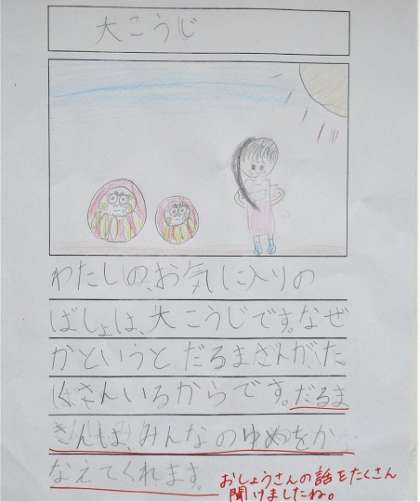 大こうじ
わたしの、お気に入りの
ばしょは、大こうじです。なぜ
かというと だるまさんがた
くさんいるからです。だるま
さんは、みんなのゆめをか
なえてくれます。
おしょうさんの話をたくさん
聞けましたね。